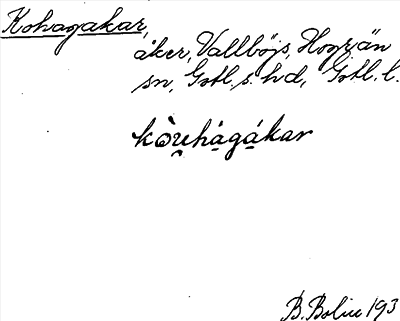 Kohagakar,
åker, Vallböjs, Hogrän
sn, Gotl. s. hd, Gotl. l.
kòu̯hágákar
B. Bolin 193